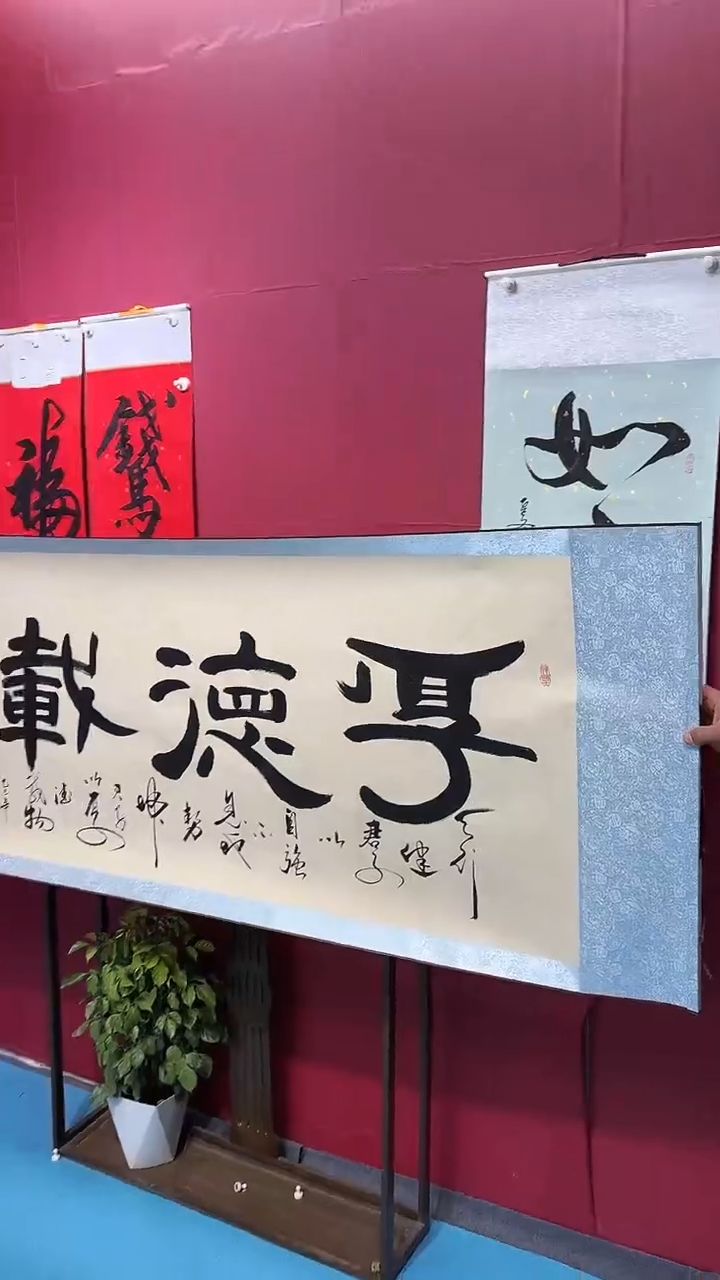 福
錢
如
厚德載
天行健君子以自強不息地勢坤君子以厚德載物